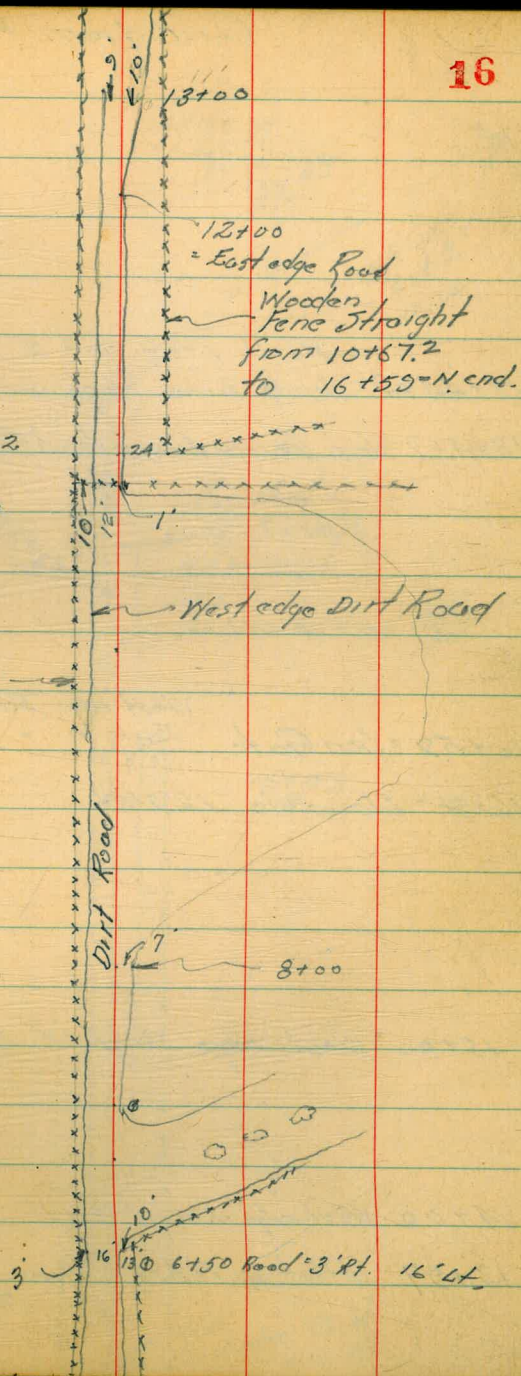 16
9' 10' 13+00
12+00
= East edge Road
Wooden
Fene Straight
from 10+67.2
to 16+59=N. end.
2
24
10' 12' 1'
West edge Dirt Road
Dirt Road
7'
8+00
10'
3 16' 13 6+50 Road = 3' Rt. 16' Lt.